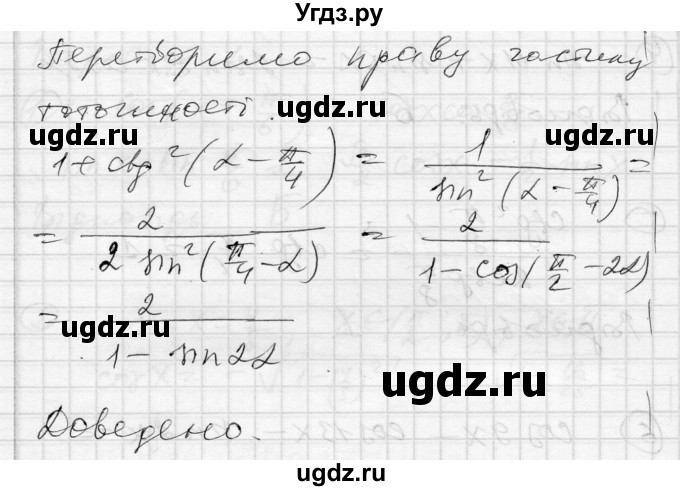 Угдз.ру
Перетворимо праву частину
тотожності.
ugdz.ru ugdz.ru ugdz.ru
1 + ctg²(α − π/4) = 1 / sin²(α − π/4) =
= 2 / 2 sin²(π/4 − α) = 2 / 1 − cos(π/2 − 2α)
= 2 / 1 − sin2α
ugdz.ru
ugdz.ru
ugdz.ru
Доведено.
ugdz.ru